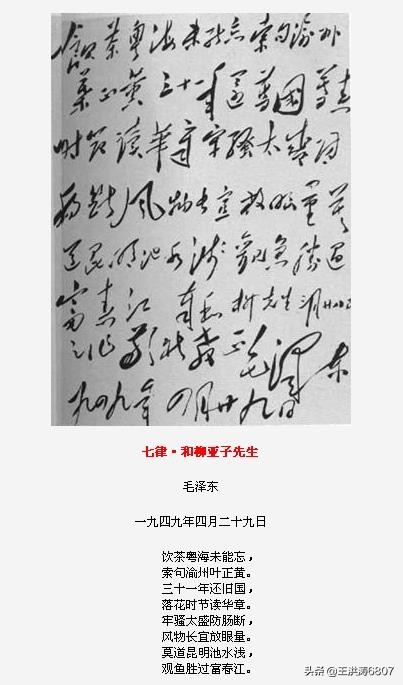 飲茶粤海未能忘索句渝州
葉正黄三十一年還舊國落花
时節讀華章牢騷太盛防
腸斷風物長宜放眼量莫
道昆明池水淺觀魚勝過
富春江 奉和柳先生三月廿八日
之作敬祈教正 毛澤东
一九四九年四月廿九日
七律·和柳亚子先生
毛泽东
一九四九年四月二十九日
饮茶粤海未能忘，
索句渝州叶正黄。
三十一年还旧国，
落花时节读华章。
牢骚太盛防肠断，
风物长宜放眼量。
莫道昆明池水浅，
观鱼胜过富春江。
头条 @王洪涛6807